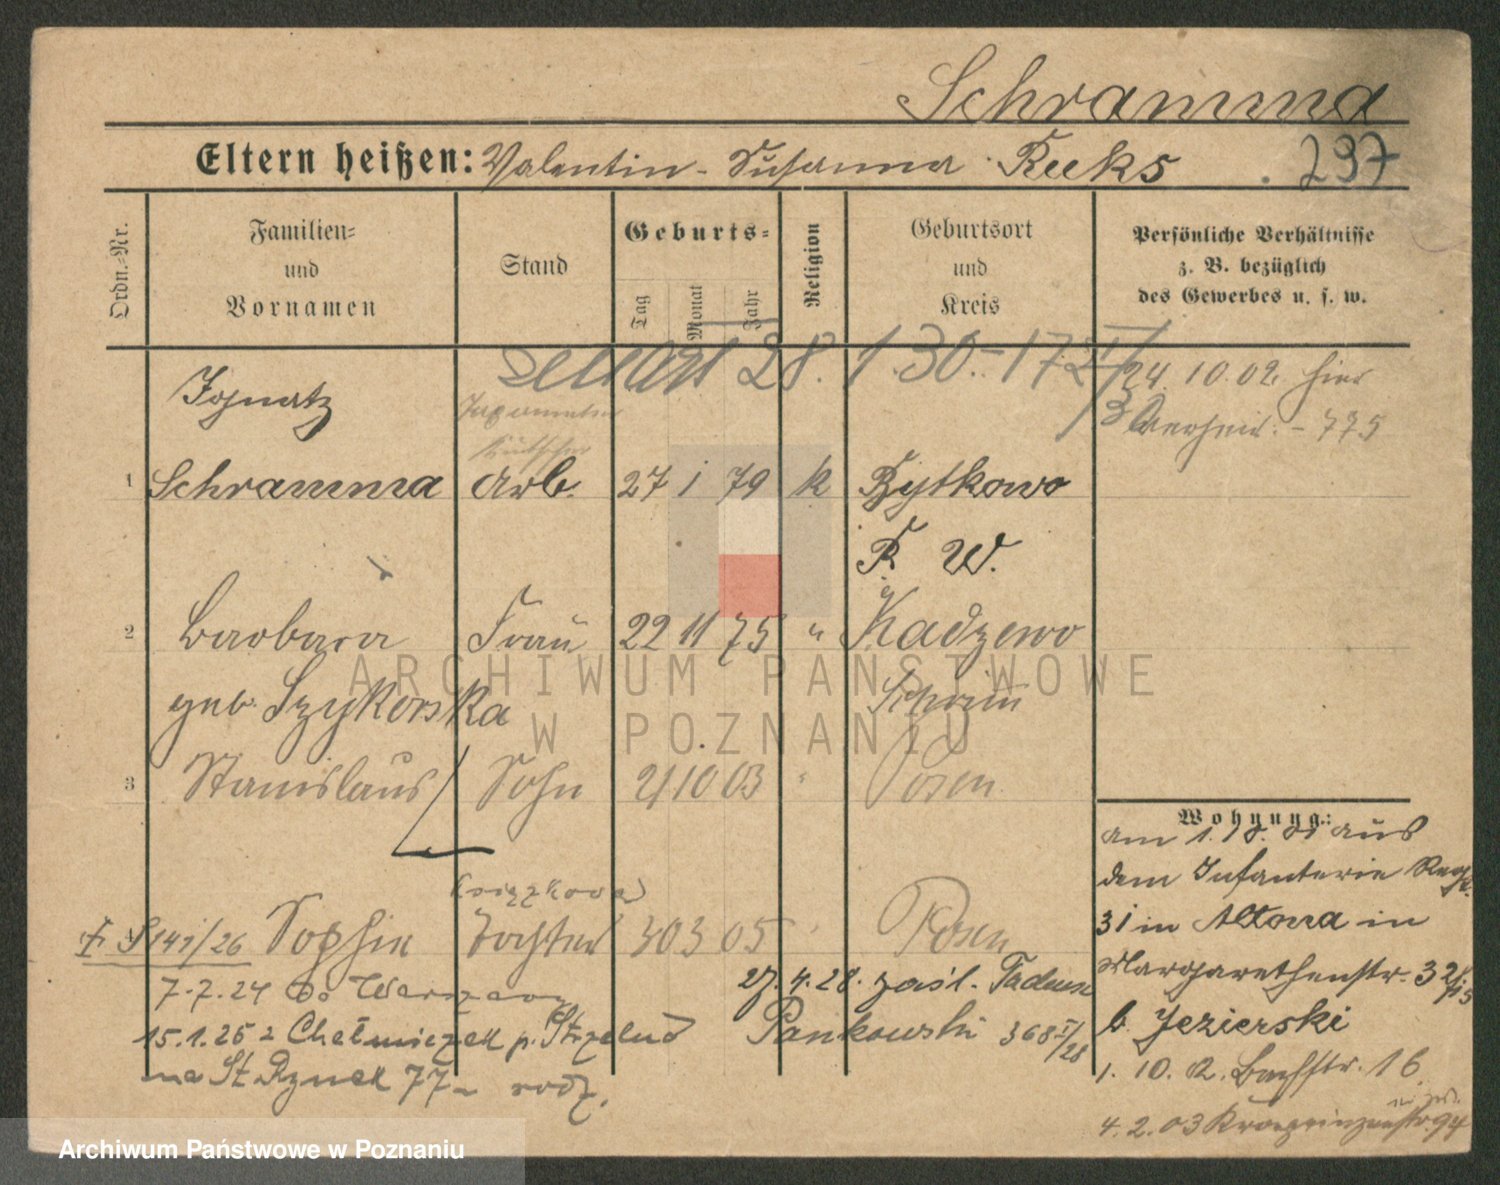 Schramma
Eltern heißen: Valentin - Susanna Ruks
. 297
Ordn.-Nr.
Familien-
und
Vornamen
Stand
Geburts-
Tag
Monat
Jahr
Religion
Geburtsort
und
Kreis
Persönliche Verhältnisse
z. B. bezüglich
des Gewerbes u. s. w.
28. 1. 30. - 172
24. 10. 02. hier
verheir. - 775
Ignatz
Kutscher
1 Schramma Arb. 27 1 79 k Rytkowo
P. W.
2 Barbara Frau 22 11 75 " Kadzewo
geb. Szykorska Schrim
3 Stanislaus Sohn 21 10 03 " Posen
Wohnung:
am 1. 10. 01 aus
dem Infanterie Regt.
31 in Altona in
Margarethenstr. 32
b. Jezierski
1. 10. 02. Bachstr. 16
4. 2. 03 Kronprinzenstr. 94
(książkowa)
S 141/26 Sophie Tochter 30 3 05 Posen
7.7.24 do Warszawy
27. 4. 28. zaśl. Tadeusz
Pankowski 368 I/28
15.1.25 z Chełmiczek p. Strzelno
na St Rynek 77 - rodz.
ARCHIWUM PAŃSTWOWE
W POZNANIU
Archiwum Państwowe w Poznaniu